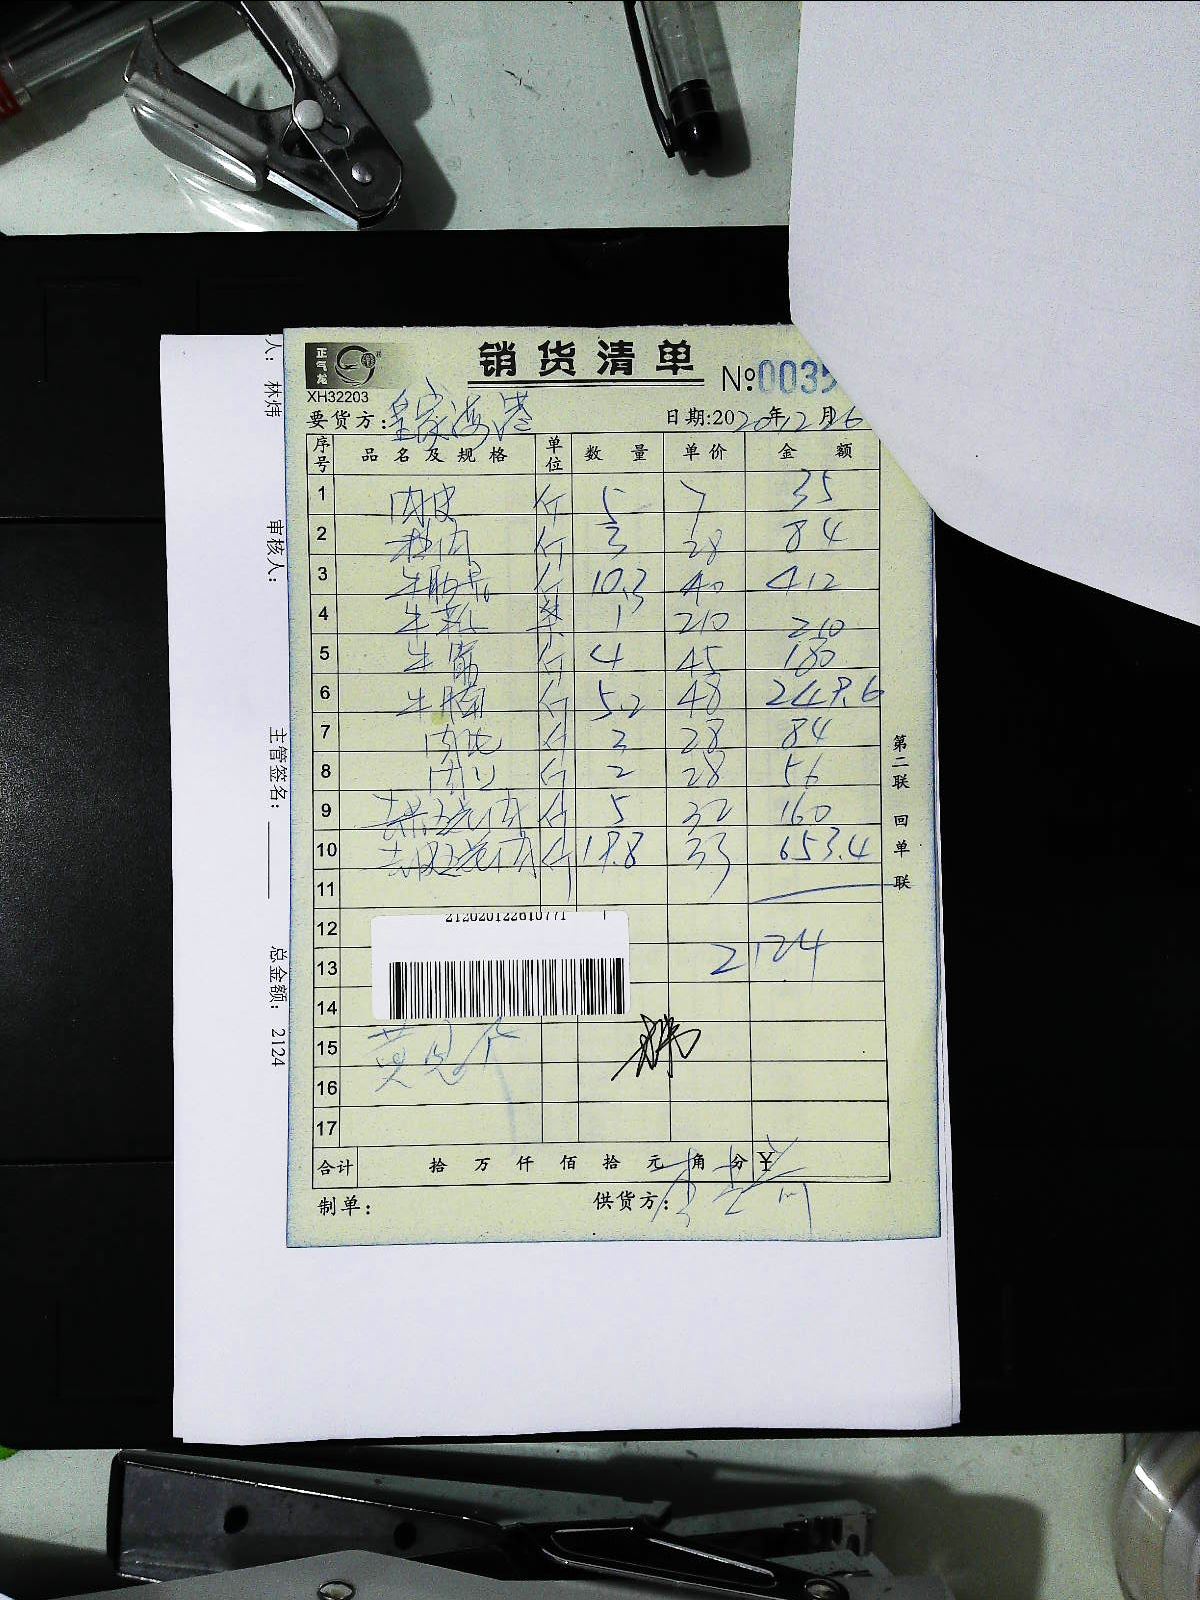 正气龙
销货清单
XH32203
№0035
要货方：皇家海港
日期:2020年12月26
序号 品名及规格 单位 数量 单价 金额
1 肉皮 斤 5 7 35
2 斤 3 28 84
3 斤 10.3 40 412
4 牛 1 210 210
5 牛 斤 4 45 180
6 牛腩 斤 5.2 48 249.6
7 斤 3 28 84
8 斤 2 28 56
9 斤 5 32 160
10 斤 19.8 33 653.4
11
12
13 2124
14
15
16
17
212020122610771
合计 拾 万 仟 佰 拾 元 角 分 ¥
制单：
供货方：
第二联 回单联
人： 林炜
审核人：
主管签名：
总金额： 2124